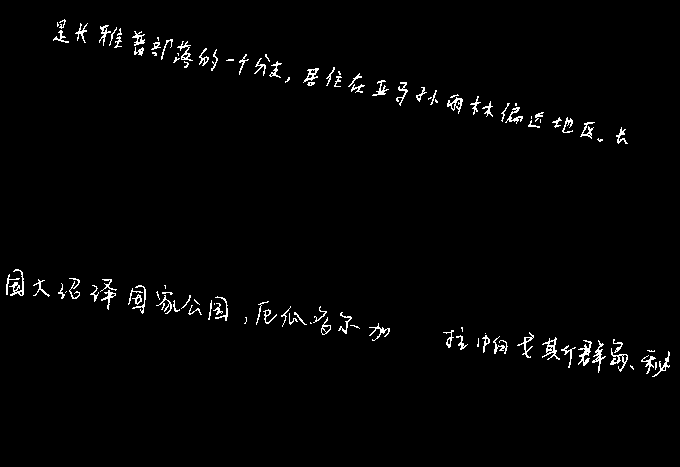 是长雅普部落的一个分支，居住在亚马孙雨林偏远地区。长
国大沼泽国家公园，厄瓜多尔加 拉帕戈斯群岛、秘